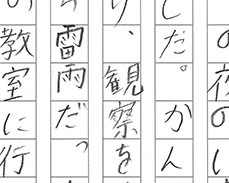 の夜の
した。かん
、観察を
雷雨だっ
の教室に行